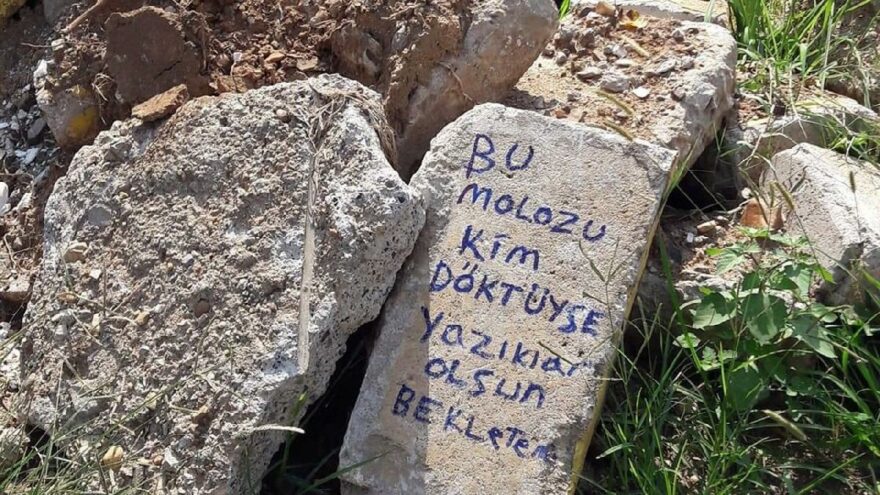 BU
MOLOZU
KİM
DÖKTÜYSE
YAZIKlar
OLSUN
BEKLETEN